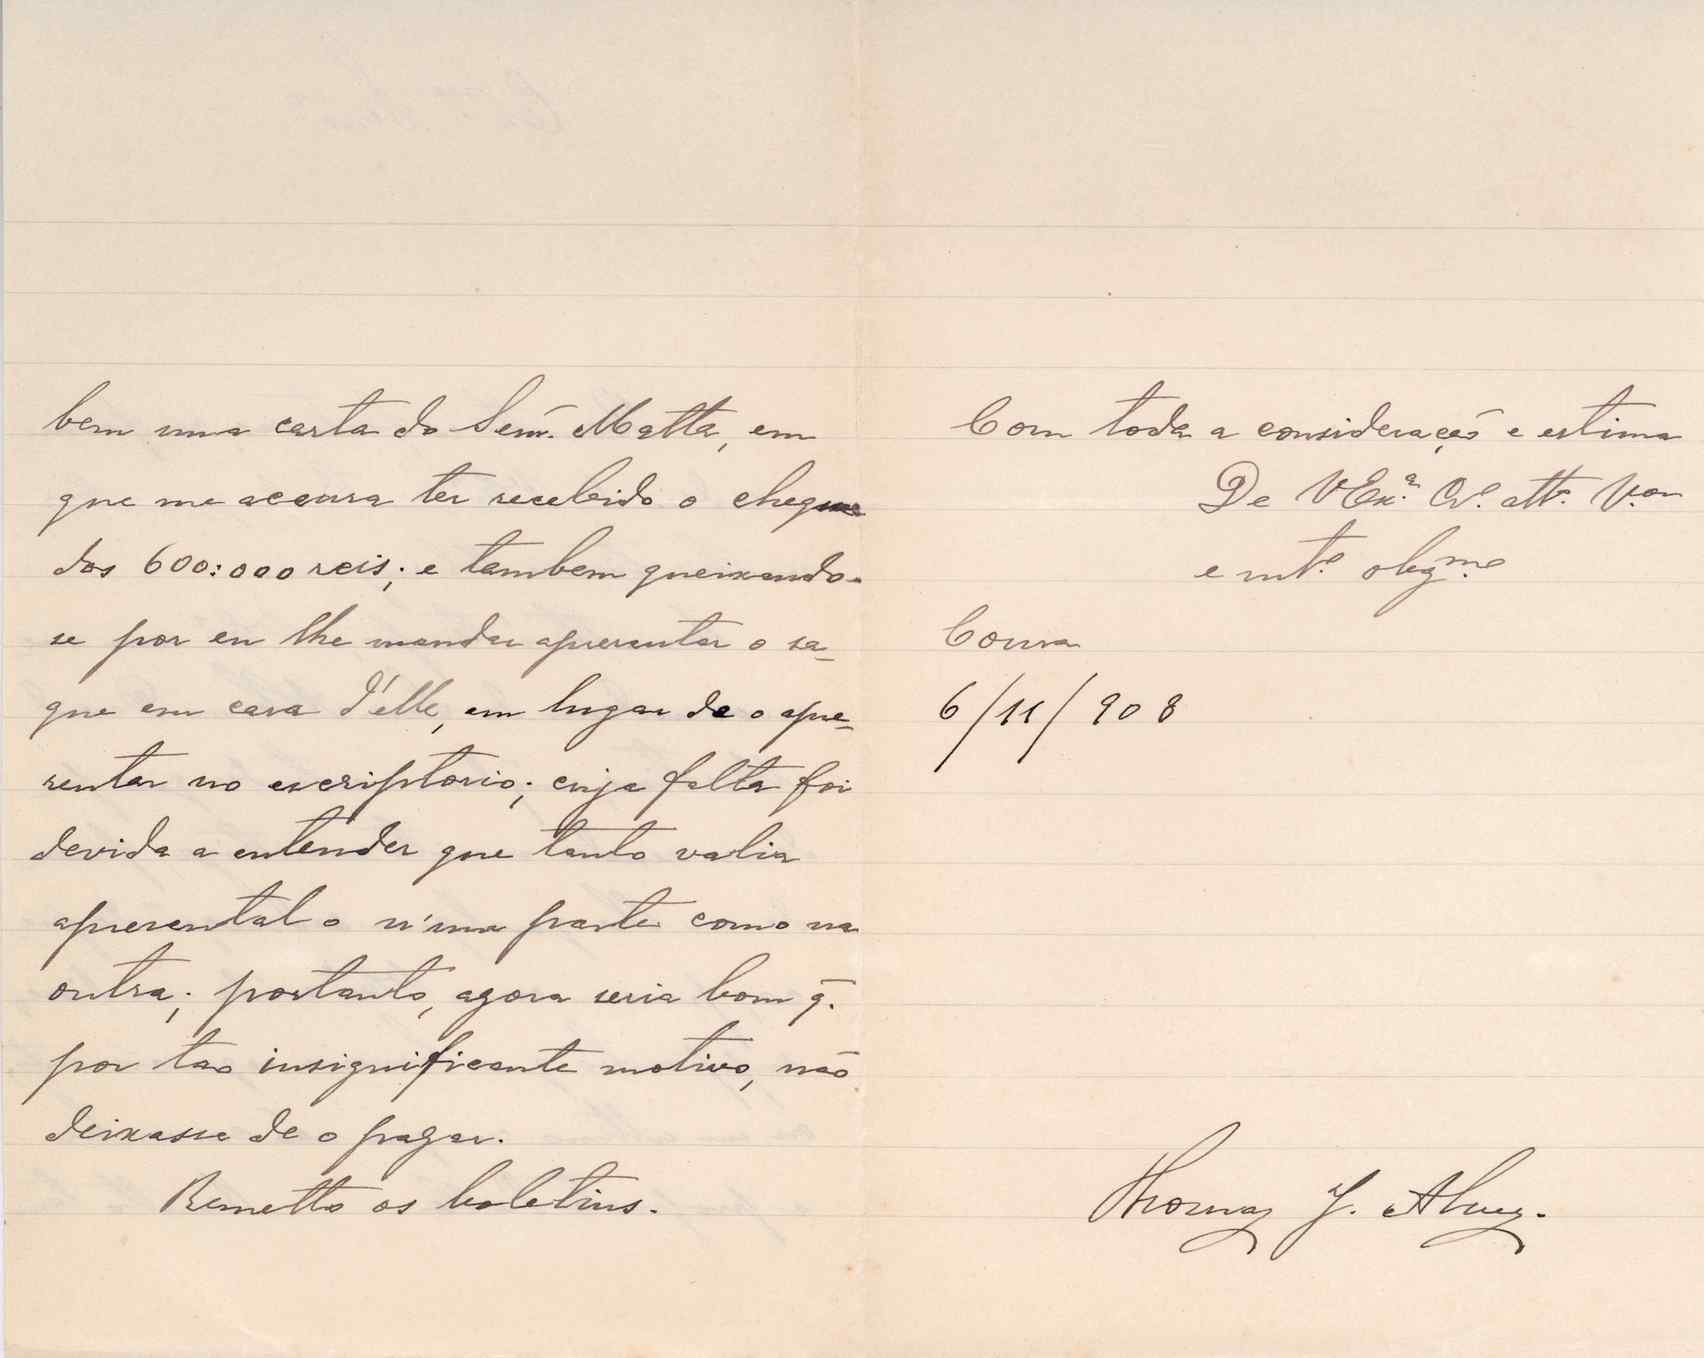 bem uma carta do Senr. Matta, em
que me accusa ter recebido o cheque
dos 600:000 reis; e tambem queixando-
se por eu lhe mandar apresentar o sa-
que em casa d'elle, em lugar de o apre-
sentar no escriptorio; cuja falta foi
devida a entender que tanto valia
apresental o n'uma parte como na
outra; portanto, agora seria bom q.
por tão insignificante motivo, não
deixasse de o pagar.
Remetto os boletins.
Com toda a consideração e estima
De VExª. Crº. attº. Vºr
e mtº. obgmº
Coura
6/11/908
Thomaz J. Alvez.